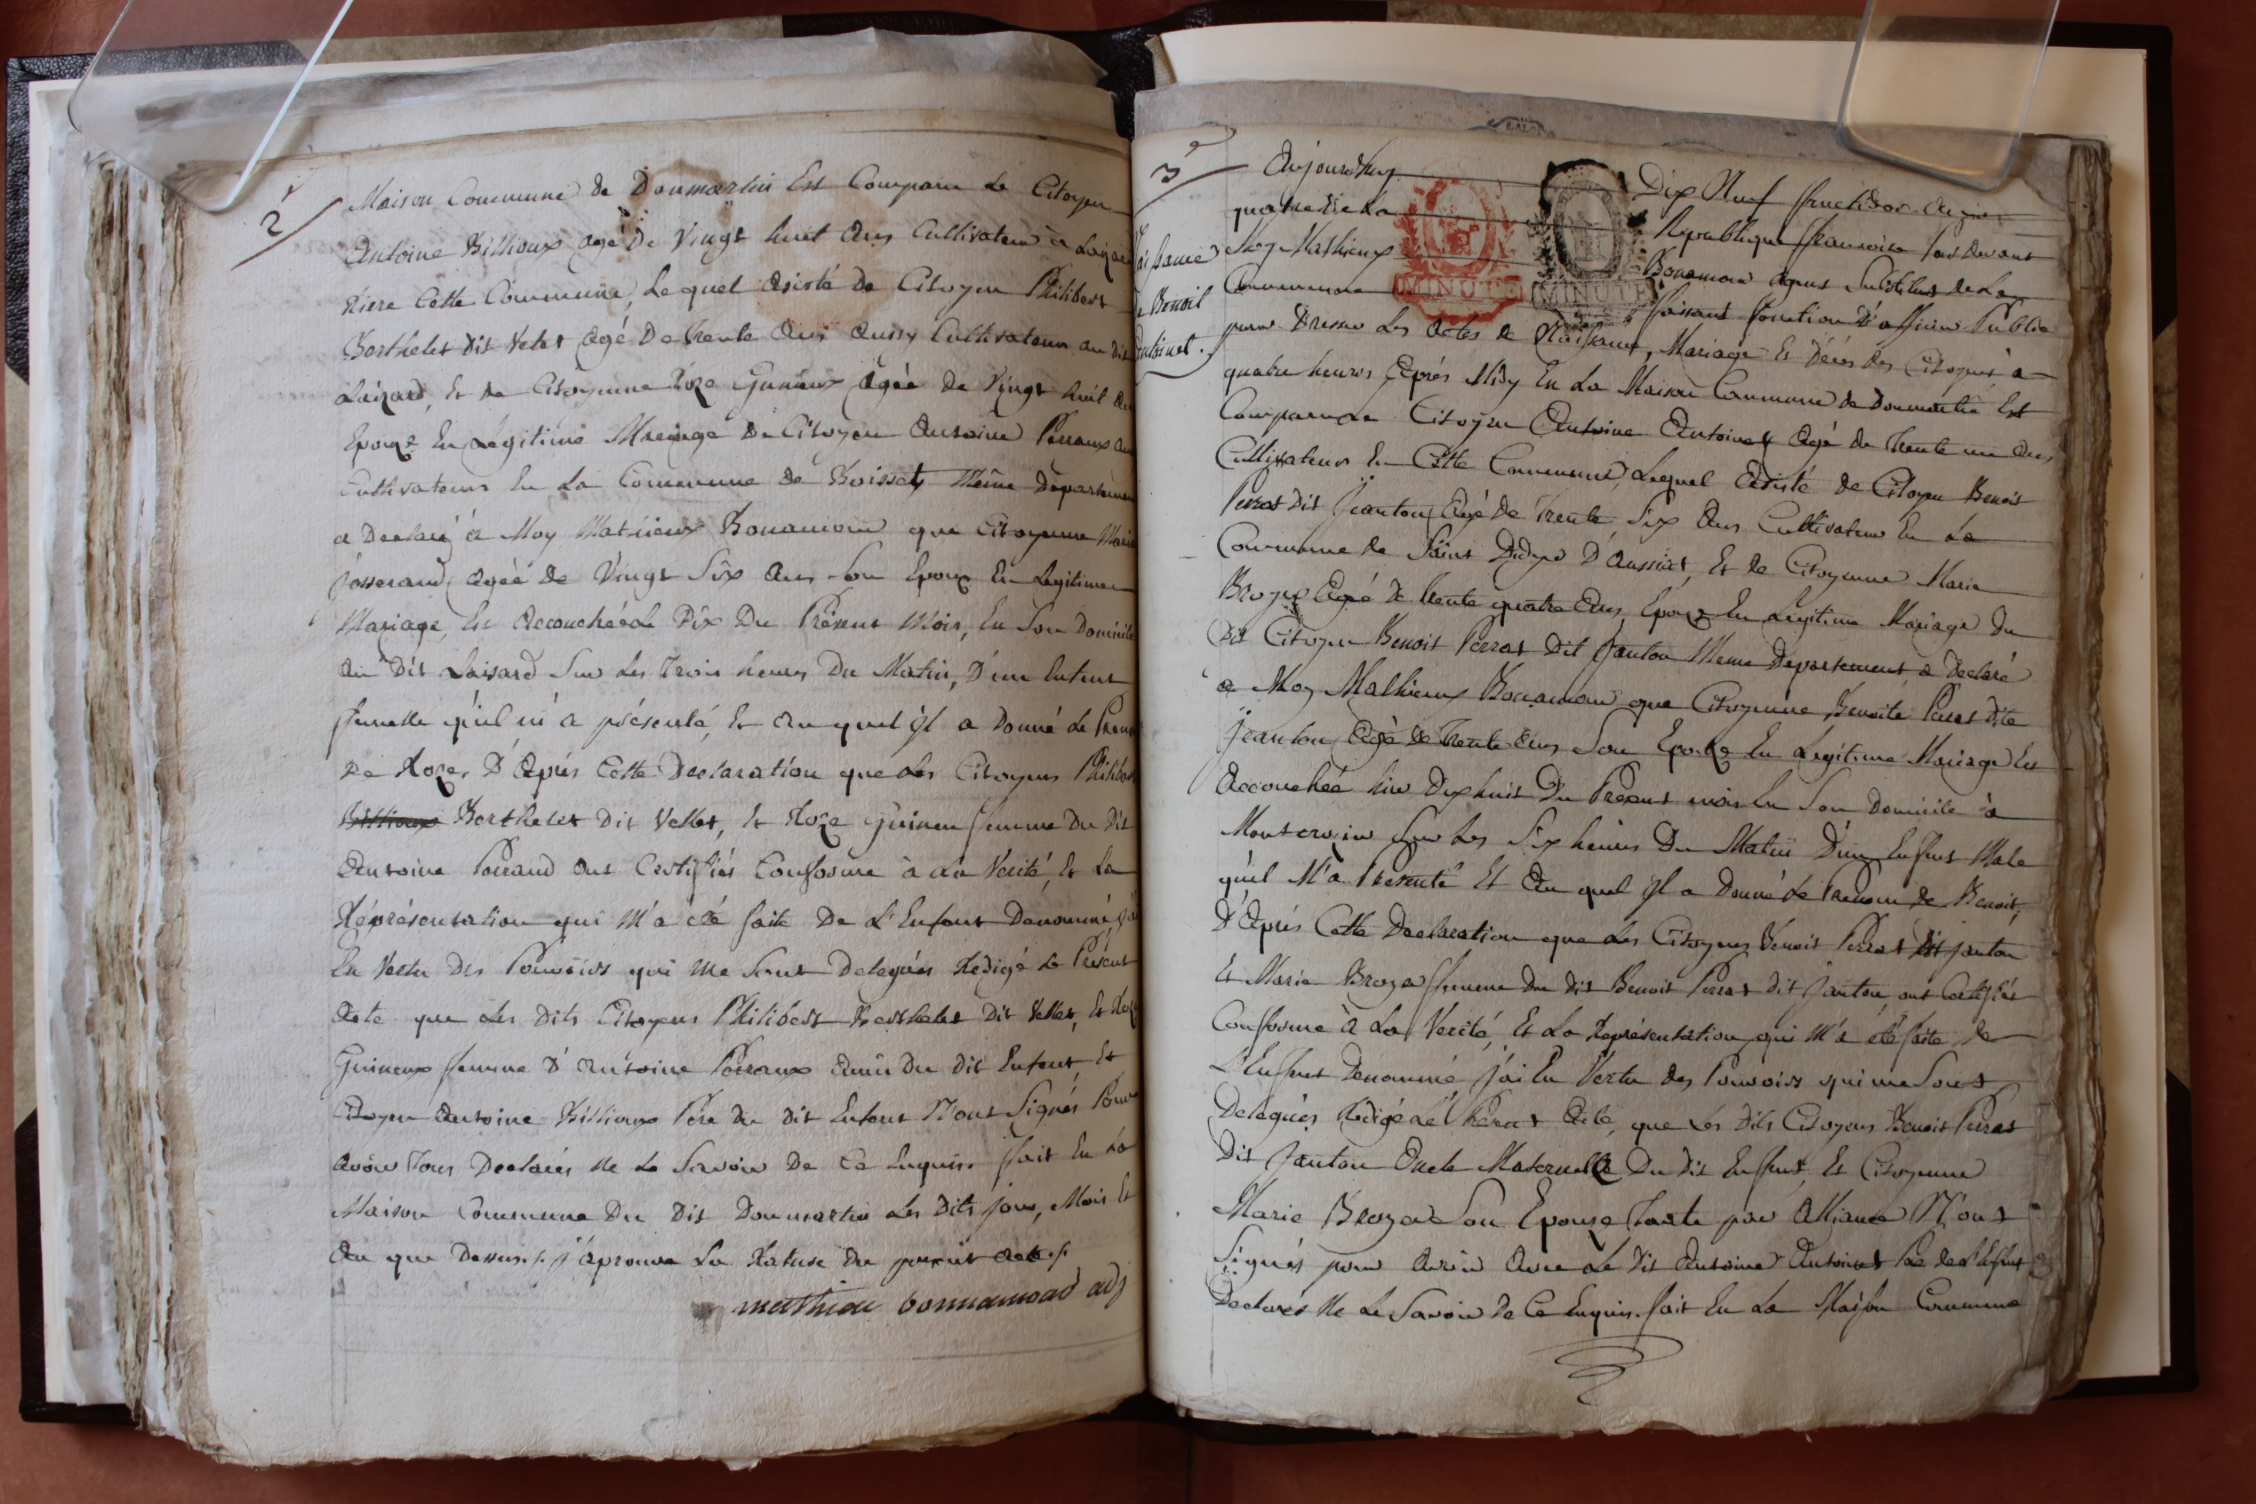 2
Maison Commune de Donmartin Est Comparu Le Citoyen
Antoine Billioux agé De Vingt huit Ans Cultivateur a
Riere Cette Commune, Lequel Asisté de Citoyen Philibert
Berthelet dit Velet Agé De Trente Ans Aussy Cultivateur au dit
Laizard, Et de Citoyenne Roze Guineux Agée De Vingt huit
Epouze En Légitime Mariage De Citoyen Antoine Perraux
Cultivateur En La Commune de Boissey Même Departement
a Declaré à Moy Mathieux Bonamour que Citoyenne Marie
Josserand, Agée de Vingt Six Ans Son Epouze En Legitime
Mariage, Est Accouchée Le Dix Du Présent Mois, En Son Domicile
au Dit Laisard Sur Les Trois heures Du Matin, D'une Enfent
ffemelle qu'il m'a présenté, Et Au quel il a Donné Le Prenom
De Roze, D'Après Cette Declaration que Les Citoyens Philibert
Billioux Berthelet Dit Vellet, Et Roze Guineu ffemme Du Dit
Antoine Perraud Ont Certifiés Conforme à La Verité, Et La
Réprésentation qui M'a été faite De L'Enfant Denommé,
En Vertu Des Pouvoirs qui Me Sont Delegués Redigé Le Présent
Acte que Les Dits Citoyens Philibert Berthelet Dit Vellet, Et Roze
Guineux ffemme D'Antoine Perraux Amis Du Dit Enfent, Et
Citoyen Antoine Billioux Pére Du Dit Enfent N'ont Signés Pour
Avoir Tous Declarés Ne Le Savoir De Ce Enquis. ffait En La
Maison Commune Du Dit Donmartin Les Dits jour, Mois Et
An que Dessus ./. j'aprouve La Rature Du présent Acte ./.
mathieu bonnamour adj
3
Naissance
de Benoit
Antoinet.
Aujourdhuy Dix Neuf ffructidor An
quatre de La Republique ffrancoise Par devant
Moy Mathieux Bonamour Agent Substitut de La
Commune faisant fonction D'officier Public
MINUTE MINUTE
pour Dresser Les Actes de Naissance, Mariage Et Décès des Citoyens à
quatre heures Aprés Midy En La Maison Commune de Donmartin Est
Comparu Le Citoyen Antoine Antoinet Agé de Trente un Ans
Cultivateur En Cette Commune, Lequel Asisté de Citoyen Benoit
Perrat Dit Jeanton Agé De Trente Six Ans Cultivateur En La
Commune de Saint Didier D'Aussiat, Et de Citoyenne Marie
Broyer Agé de trente quatre Ans, Epouze En Legitime Mariage Du
Dit Citoyen Benoit Perrat Dit Janton Meme Departement a Declaré
a Moy Mathieux Bonamour que Citoyenne Benoite Perrat Dite
Jeanton Agé de Trente Ans Son Epouze En Legitime Mariage Est
Accouchée hier Dixhuit Du Présent mois En Son Domicile à
Montcrozier Sur Les Six heures Du Matin D'un Enfent Male
qu'il M'a Présenté Et Au quel il a Donné Le Prenom De Benoit,
D'Aprés Cette Declaration que Les Citoyens Benoit Perrat Dit Janton
Et Marie Broyer ffemme Du dit Benoit Perrat Dit Janton ont Certifiés
Conforme à La Verité, Et La Représentation qui M'a été faite De
L'Enfent Dénommé J'ai En Vertu Des Pouvoirs qui me Sont
Delegués Redigé Le Présent Acte, que Les Dits Citoyens Benoit Perrat
Dit Janton Oncle Maternelle Du Dit Enfent, Et Citoyenne
Marie Broyer Son Epouze Tante par Alliance N'ont
Signés pour Avoir Avec Le Dit Antoine Antoinet Pére de L'Enfent
Declarés Ne Le Savoir De Ce Enquis. fait En La Maison Commune